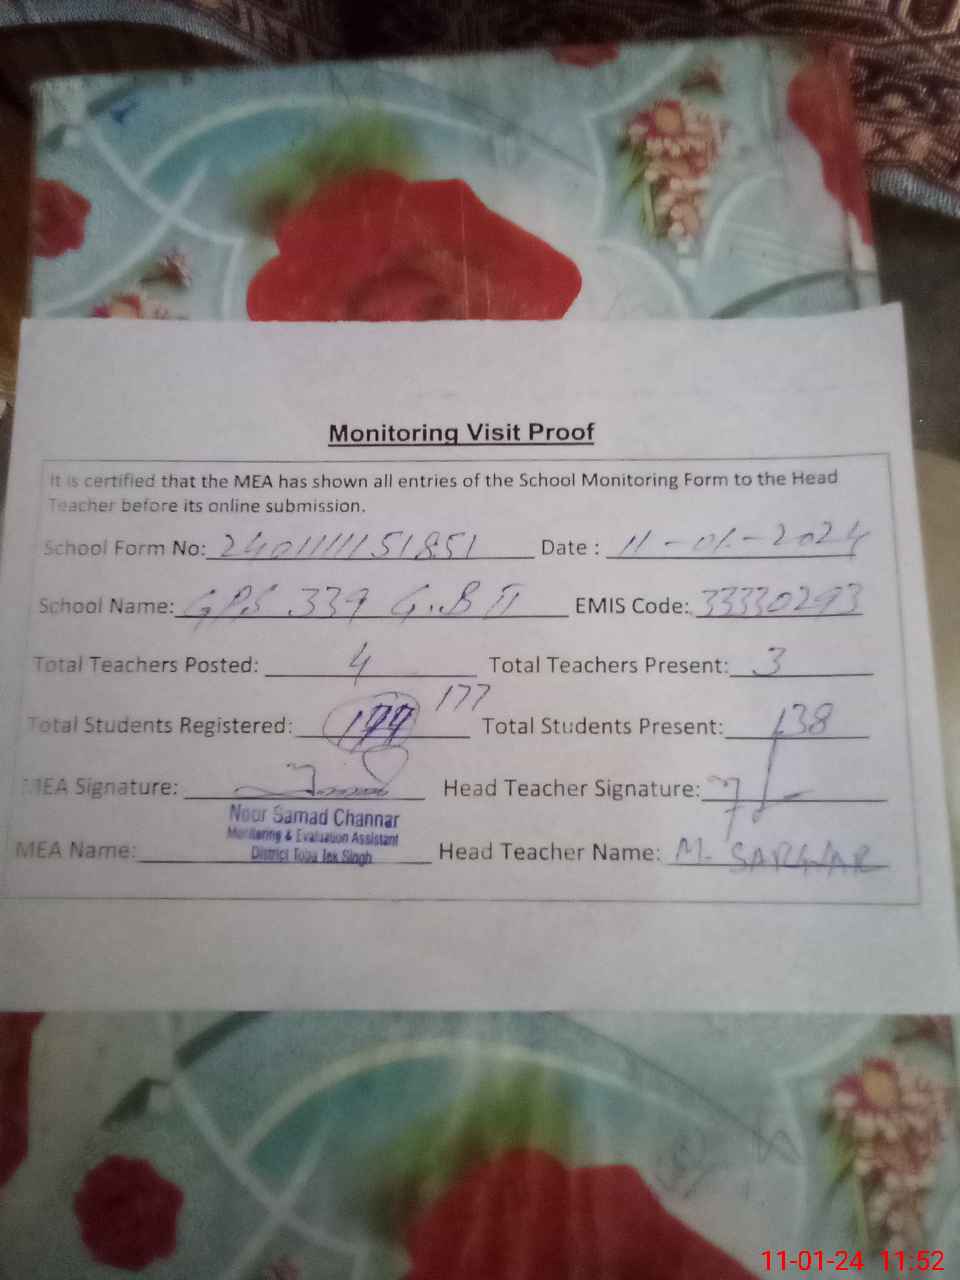 Monitoring Visit Proof
It is certified that the MEA has shown all entries of the School Monitoring Form to the Head
Teacher before its online submission.
School Form No: 2401111151851 Date : 11-01-2024
School Name: GPS 339 G.B II EMIS Code: 33330293
Total Teachers Posted: 4 Total Teachers Present: 3
Total Students Registered: 177 Total Students Present: 138
MEA Signature: Head Teacher Signature:
Noor Samad Channar
Monitoring & Evaluation Assistant
District Toba Tek Singh
MEA Name: Head Teacher Name: M. SARWAR
11-01-24 11:52